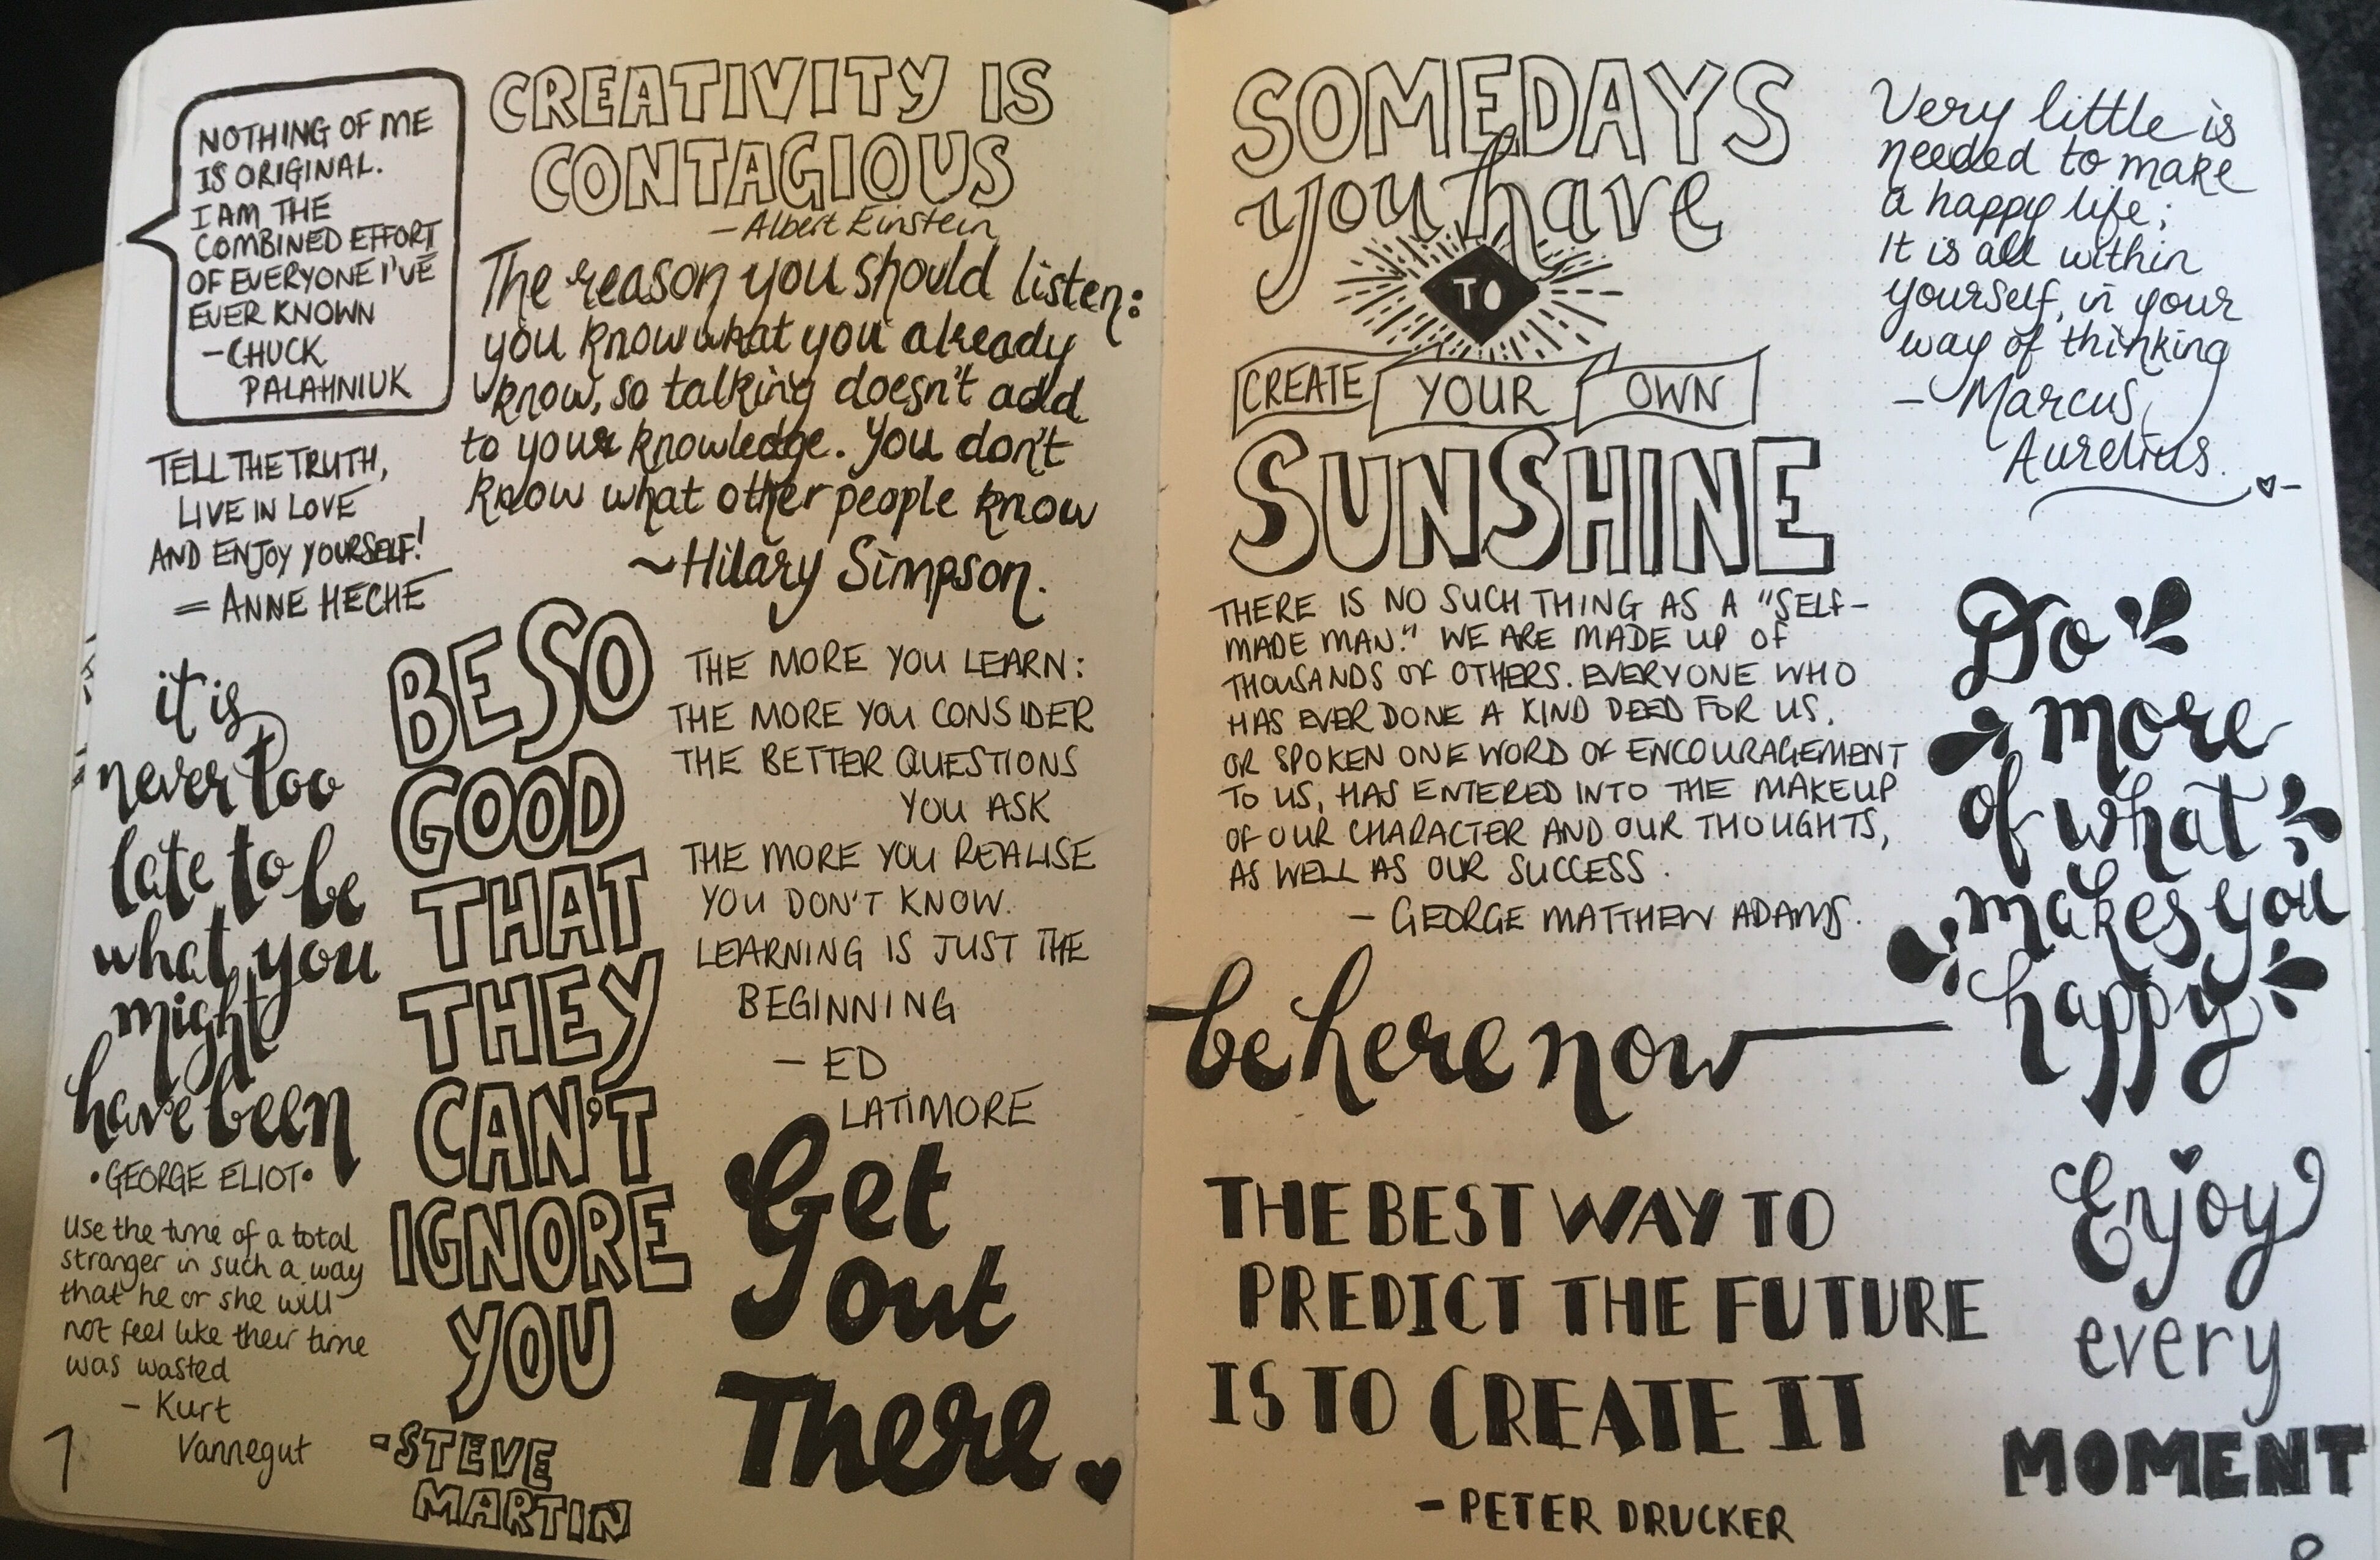 NOTHING OF ME
IS ORIGINAL.
I AM THE
COMBINED EFFORT
OF EVERYONE I'VE
EVER KNOWN
-CHUCK
PALAHNIUK
CREATIVITY IS
CONTAGIOUS
- Albert Einstein
The reason you should listen:
you know what you already
know, so talking doesn't add
to your knowledge. You don't
know what other people know
~Hilary Simpson.
TELL THE TRUTH,
LIVE IN LOVE
AND ENJOY YOURSELF!
= ANNE HECHE
it is
never too
late to be
what you
might
have been
•GEORGE ELIOT•
Use the time of a total
stranger in such a way
that he or she will
not feel like their time
was wasted
- Kurt
Vannegut
7
BE SO
GOOD
THAT
THEY
CAN'T
IGNORE
YOU
-STEVE
MARTIN
THE MORE YOU LEARN:
THE MORE YOU CONSIDER
THE BETTER QUESTIONS
YOU ASK
THE MORE YOU REALISE
YOU DON'T KNOW.
LEARNING IS JUST THE
BEGINNING
- ED
LATIMORE
Get
out
There.
SOMEDAYS
you have
TO
CREATE YOUR OWN
SUNSHINE
Very little is
needed to make
a happy life;
It is all within
yourself, in your
way of thinking
- Marcus
Aurelius.
THERE IS NO SUCH THING AS A "SELF-
MADE MAN." WE ARE MADE UP OF
THOUSANDS OF OTHERS. EVERYONE WHO
HAS EVER DONE A KIND DEED FOR US,
OR SPOKEN ONE WORD OF ENCOURAGEMENT
TO US, HAS ENTERED INTO THE MAKEUP
OF OUR CHARACTER AND OUR THOUGHTS,
AS WELL AS OUR SUCCESS.
- GEORGE MATTHEW ADAMS.
Do
more
of what
makes you
happy
be here now
THE BEST WAY TO
PREDICT THE FUTURE
IS TO CREATE IT
- PETER DRUCKER
Enjoy
every
MOMENT